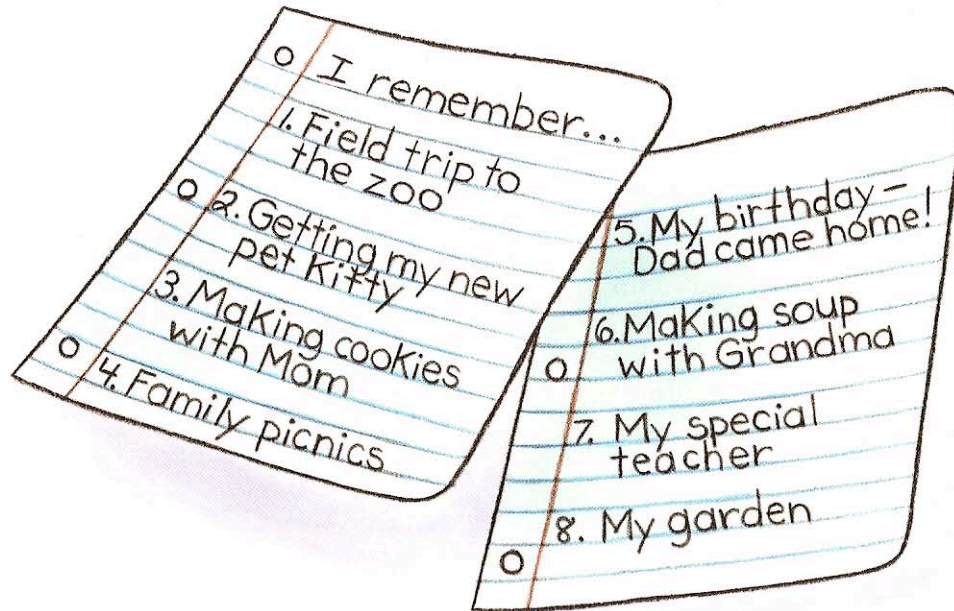 I remember...
1. Field trip to
the zoo
2. Getting my new
pet Kitty
3. Making cookies
with Mom
4. Family picnics
5. My birthday–
Dad came home!
6. Making soup
with Grandma
7. My special
teacher
8. My garden